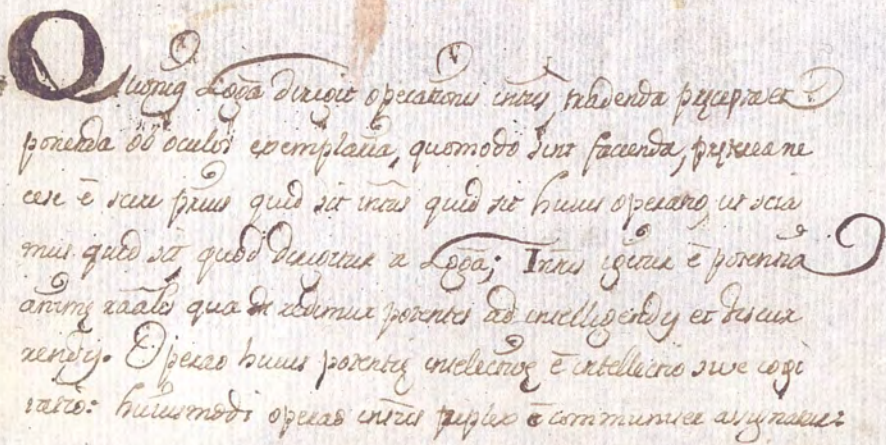 Quoniã Logã dirigit operationes intũs, tradenda pręcepta et
ponenda ob oculos exemplaria, quomodo sint facienda, pręterea ne
cese ẽ scire prius quid sit intũs quid sit huius operatio, ut scia
mus quid sit quod dirigitur a Logã; Intũs igitur ẽ potentia
animę raãlis qua redimur potentes ad intelligendũ et discur
rendũ. Operaõ huius potentię intelectivę ẽ intellectio sive cogi
tatio: huiusmodi operaõ intũs triplex ẽ communiter assignatur: